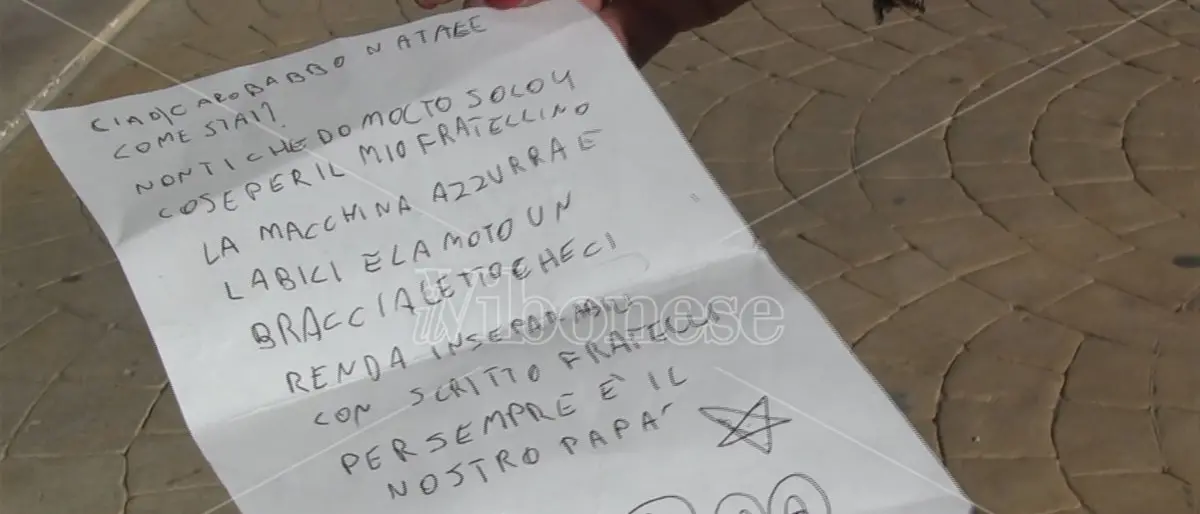 CIAO CARO BABBO NATALE
COME STAI?
NON TI CHEDO MOLTO SOLO 4
COSE PER IL MIO FRATELLINO
LA MACCHINA AZZURRA E
LA BICI E LA MOTO UN
BRACCIALETTO CHE CI
RENDA INSEPARABILI
CON SCRITTO FRATELLI
PER SEMPRE E' IL
NOSTRO PAPA'
il Vibonese